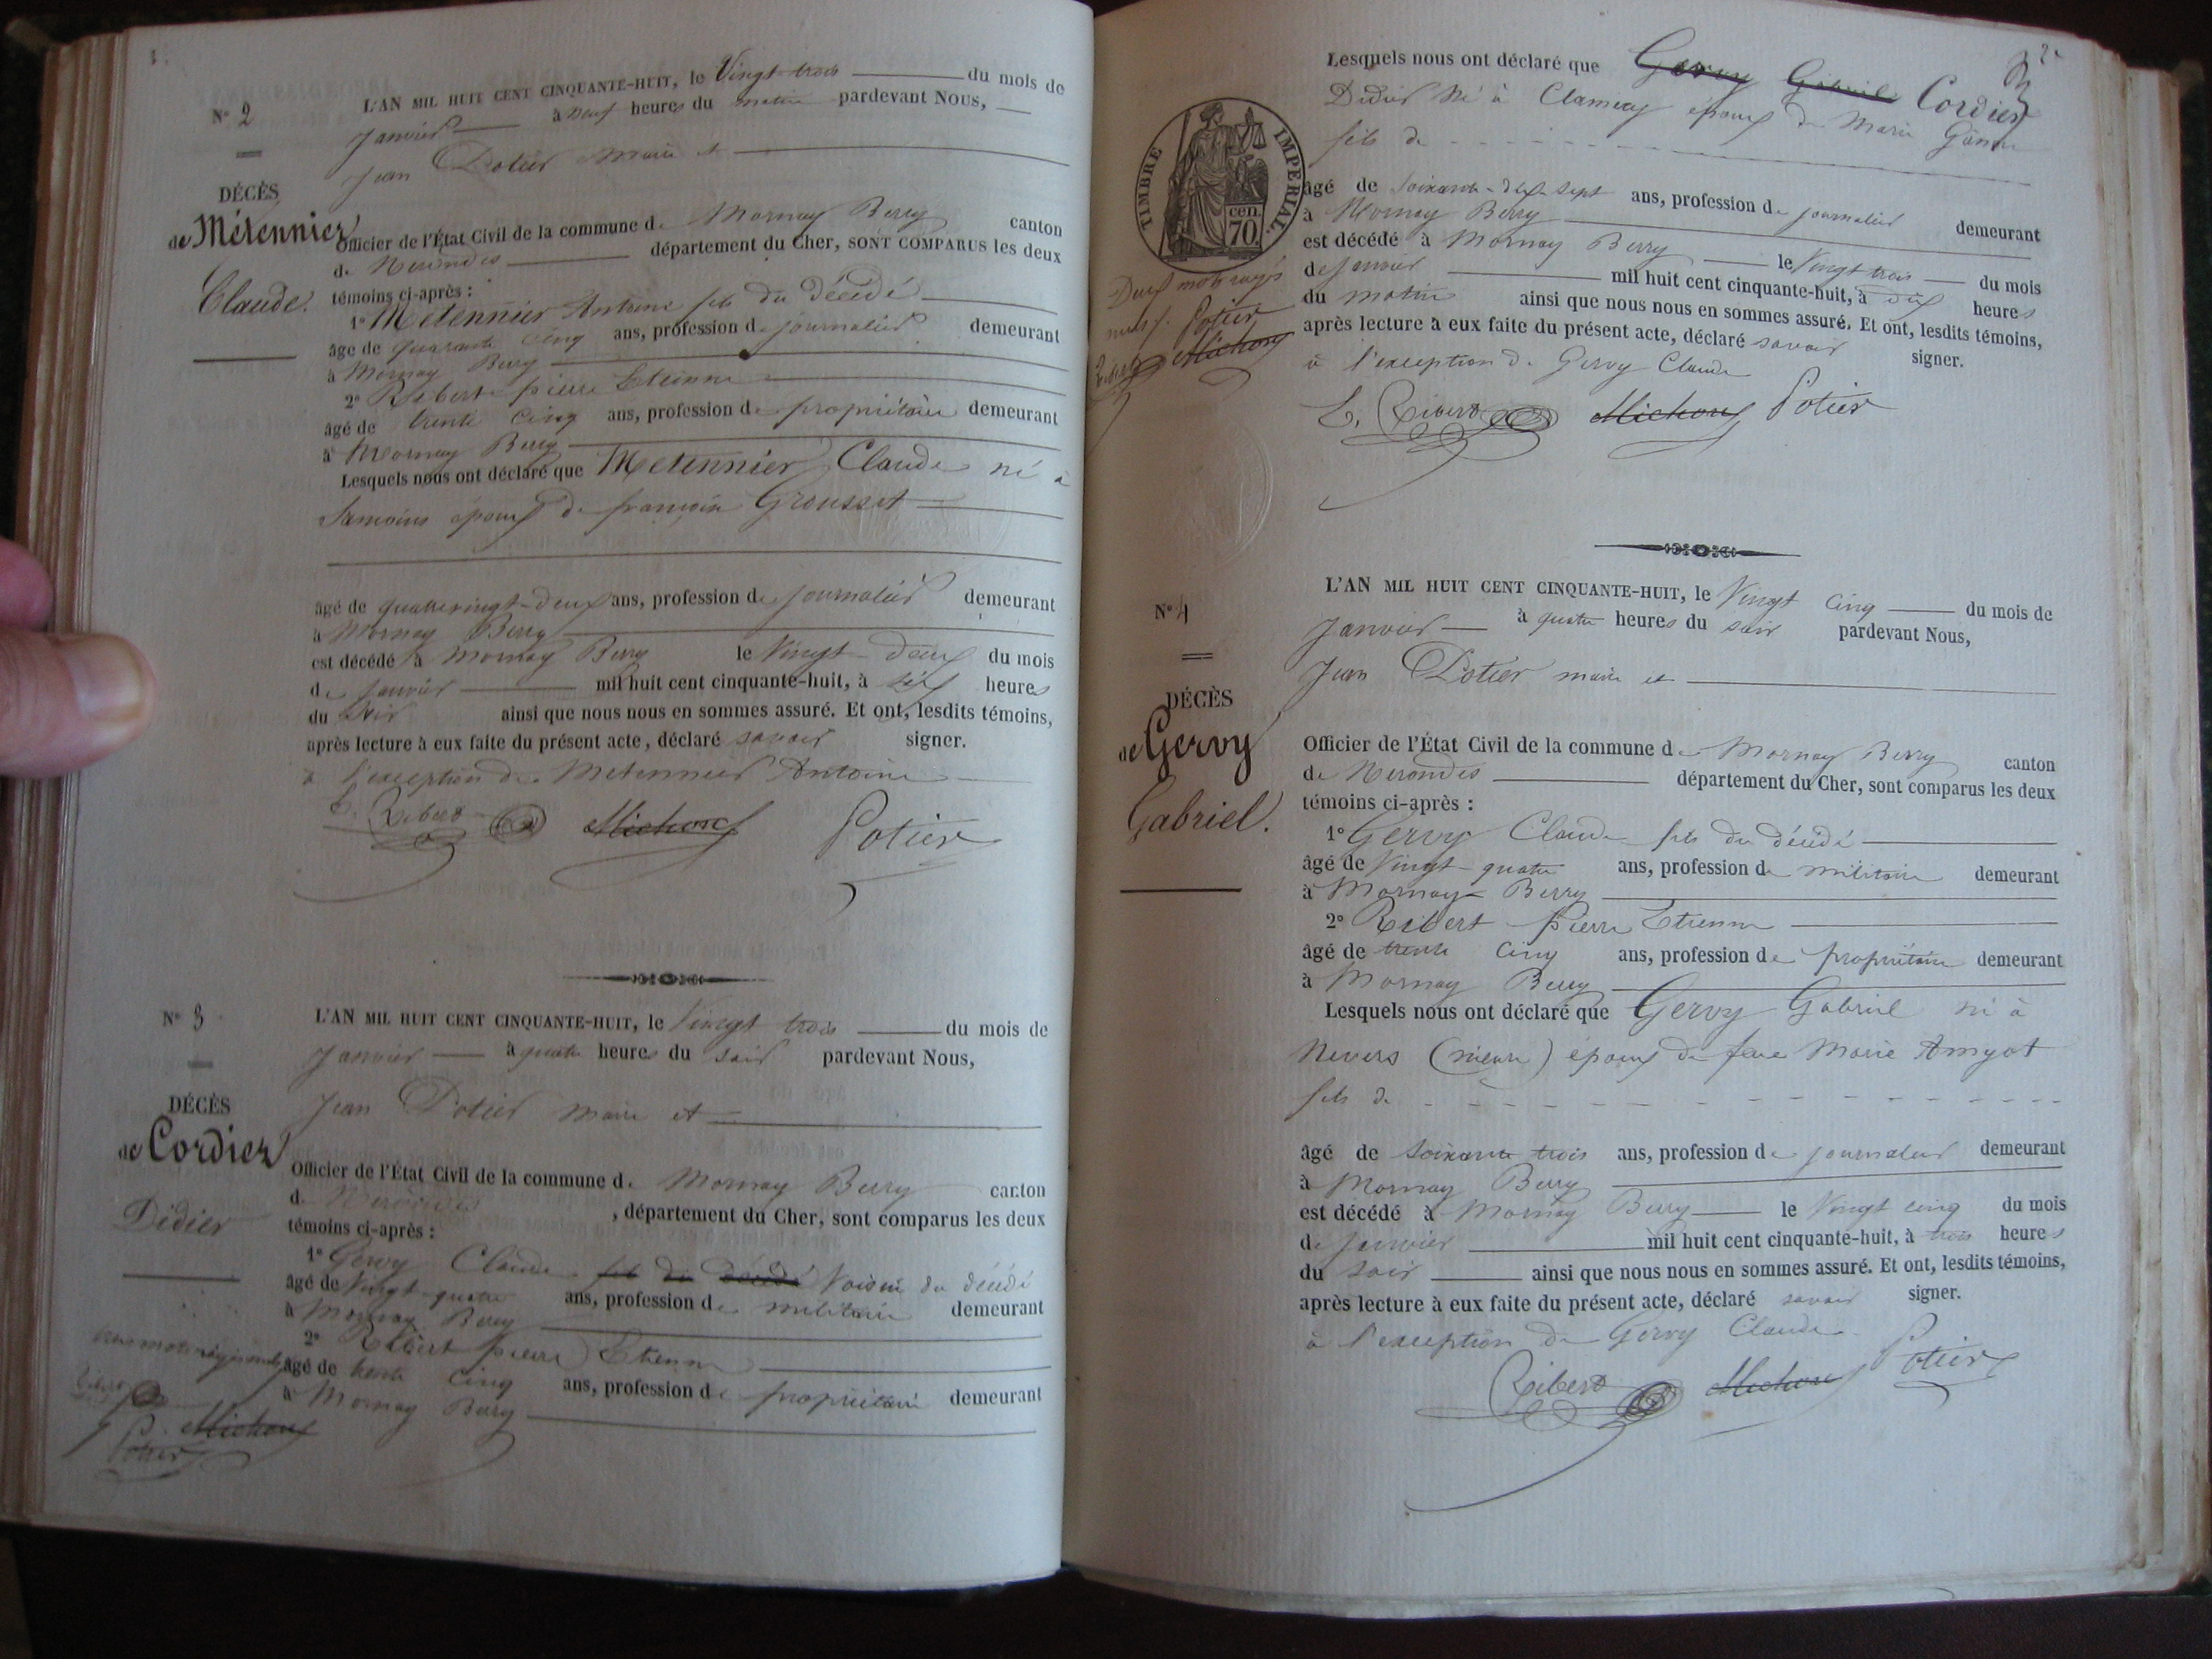 N° 2
L'AN MIL HUIT CENT CINQUANTE-HUIT, le Vingt-trois du mois de
Janvier à neuf heures du matin pardevant NOUS,
Jean Potier Maire et
DÉCÈS
de Métennier
Claude.
Officier de l'État Civil de la commune de Mornay Berry canton
de Nerondes département du Cher, SONT COMPARUS les deux
témoins ci-après :
1° Métennier Antoine fils du décédé
âgé de quarante cinq ans, profession de journalier demeurant
à Mornay Berry
2° Ribert pierre Etienne
âgé de trente cinq ans, profession de propriétaire demeurant
à Mornay Berry
Lesquels nous ont déclaré que Metennier Claude né à
époux de françoise Grousset
âgé de quatrevingt-deux ans, profession de journalier demeurant
à Mornay Berry
est décédé à Mornay Berry le Vingt-deux du mois
de Janvier mil huit cent cinquante-huit, à heures
du soir ainsi que nous nous en sommes assuré. Et ont, lesdits témoins,
après lecture à eux faite du présent acte, déclaré savoir signer.
à l'exception de Metennier Antoine
E. Ribert Michon Potier
N° 3
L'AN MIL HUIT CENT CINQUANTE-HUIT, le Vingt trois du mois de
Janvier à quatre heures du soir pardevant Nous,
Jean Potier maire et
DÉCÈS
de Cordier
Didier
Officier de l'État Civil de la commune de Mornay Berry canton
de Nerondes, département du Cher, sont comparus les deux
témoins ci-après :
1° Gervy Claude fils du décédé Voisin du décédé
âgé de Vingt-quatre ans, profession de militaire demeurant
à Mornay Berry
2° Ribert pierre Etienne
âgé de trente cinq ans, profession de propriétaire demeurant
à Mornay Berry
trois mots rayés nuls
Ribert
Michon
Potier
2e
Lesquels nous ont déclaré que Gervy Gabriel Cordier
Didier né à Clamecy époux de Marie
fils de
TIMBRE IMPERIAL
cen. 70.
âgé de soixante-dix-sept ans, profession de journalier demeurant
à Mornay Berry
est décédé à Mornay Berry le Vingt trois du mois
de Janvier mil huit cent cinquante-huit, à heures
du matin ainsi que nous nous en sommes assuré. Et ont, lesdits témoins,
après lecture à eux faite du présent acte, déclaré savoir signer.
à l'exception de Gervy Claude
Deux mots rayés
nuls.
Potier
Ribert Michon
E. Ribert Michon Potier
N° 4
L'AN MIL HUIT CENT CINQUANTE-HUIT, le Vingt cinq du mois de
Janvier à quatre heures du soir pardevant Nous,
Jean Potier maire et
DÉCÈS
de Gervy
Gabriel.
Officier de l'État Civil de la commune de Mornay Berry canton
de Nerondes département du Cher, sont comparus les deux
témoins ci-après :
1° Gervy Claude fils du décédé
âgé de Vingt-quatre ans, profession de militaire demeurant
à Mornay-Berry
2° Ribert Pierre Etienne
âgé de trente cinq ans, profession de propriétaire demeurant
à Mornay Berry
Lesquels nous ont déclaré que Gervy Gabriel né à
Nevers (nièvre) époux de feue Marie Amyot
fils de
âgé de soixante trois ans, profession de journalier demeurant
à Mornay Berry
est décédé à Mornay Berry le Vingt cinq du mois
de Janvier mil huit cent cinquante-huit, à trois heures
du soir ainsi que nous nous en sommes assuré. Et ont, lesdits témoins,
après lecture à eux faite du présent acte, déclaré savoir signer.
à l'exception de Gervy Claude
Ribert Michon Potier